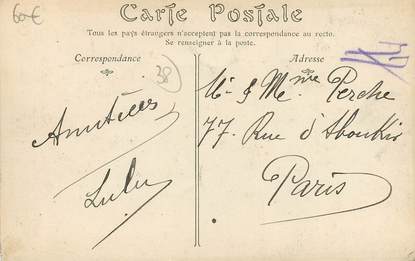 60€
Carte Postale
Tous les pays étrangers n'acceptent pas la correspondance au recto.
Se renseigner à la poste.
Correspondance
Adresse
38
Amitiées
Lulu
Mr & Mme Perche
77. Rue d'Aboukir
Paris